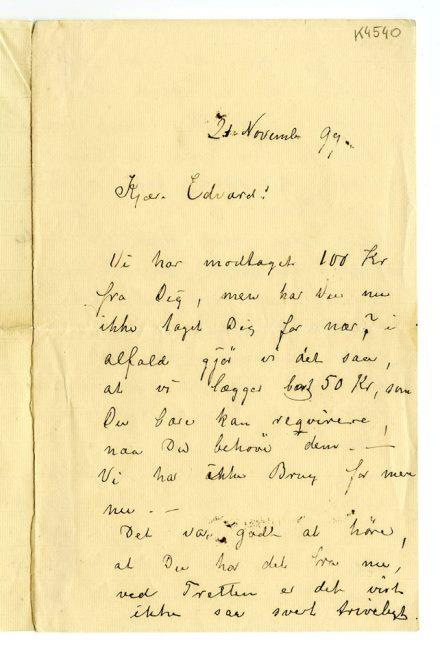 K4540
21 Novembr 99.
Kjære Edvard!
Vi har modtaget 100 Kr
fra Dig, men har Du nu
ikke taget Dig for nær? i
alfald gjør vi det saa,
at vi lægger bort 50 Kr, som
Du bare kan reqvirere,
naa Du behøve dem. —
Vi har ikke Brug for mere
nu. —
Det var godt at høre,
at Du har det bra nu,
ved Tretten er det vist
ikke saa svert triveligt.